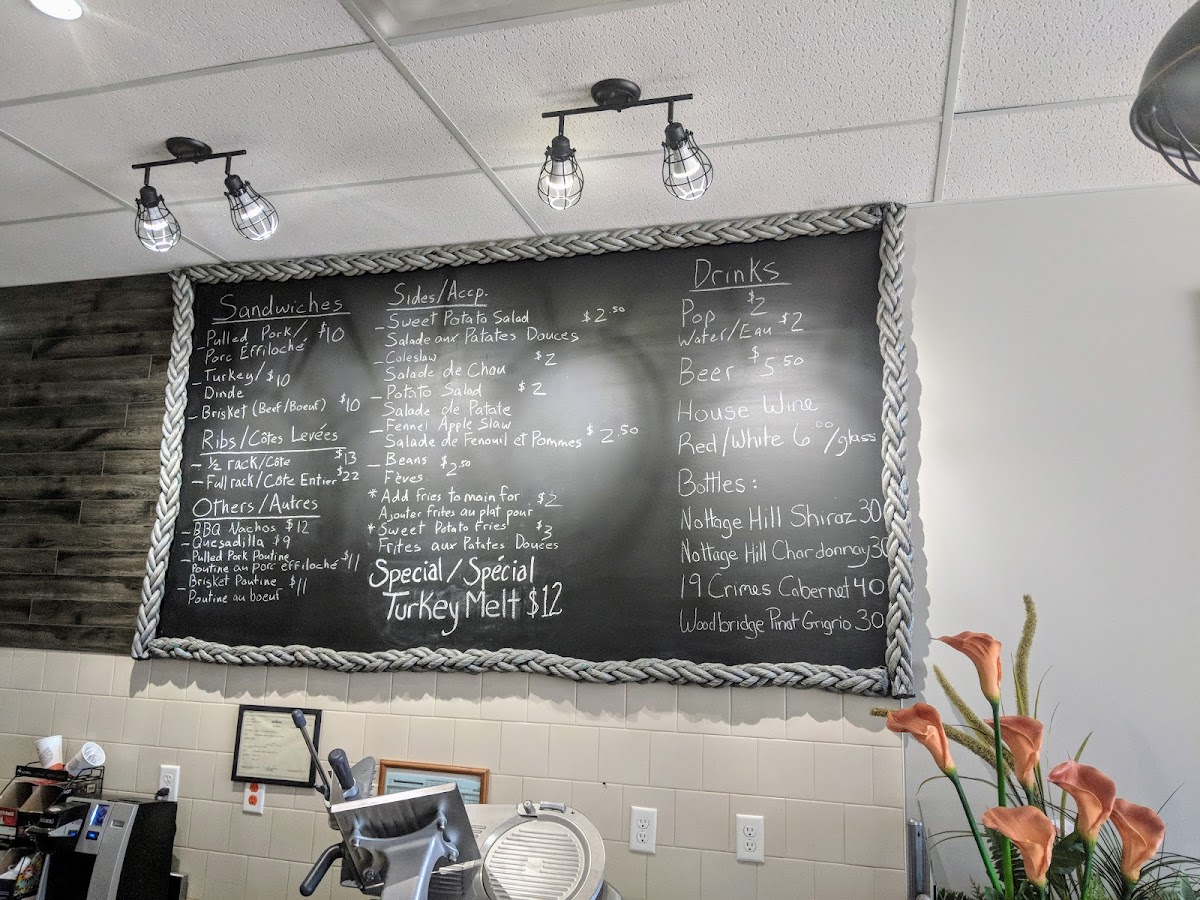 Sandwiches
Pulled Pork/ $10
Porc Effiloché
- Turkey/ $10
Dinde
- Brisket (Beef/Boeuf) $10
Ribs/Côtes Levées
- ½ rack/Côte $13
- Full rack/Côte Entier $22
Others/Autres
- BBQ Nachos $12
- Quesadilla $9
- Pulled Pork Poutine
Poutine au porc effiloché $11
- Brisket Poutine $11
Poutine au boeuf
Sides/Accp.
- Sweet Potato Salad $2.50
Salade aux Patates Douces
- Coleslaw $2
Salade de Chou
- Potato Salad $2
Salade de Patate
- Fennel Apple Slaw
Salade de Fenouil et Pommes $2.50
- Beans $2.50
Fèves
* Add fries to main for $2
Ajouter frites au plat pour
* Sweet Potato Fries $3
Frites aux Patates Douces
Special/Spécial
Turkey Melt $12
Drinks
Pop $2
Water/Eau $2
Beer $5.50
House Wine
Red/White 6.00/glass
Bottles:
Nottage Hill Shiraz 30
Nottage Hill Chardonnay 30
19 Crimes Cabernet 40
Woodbridge Pinot Grigrio 30